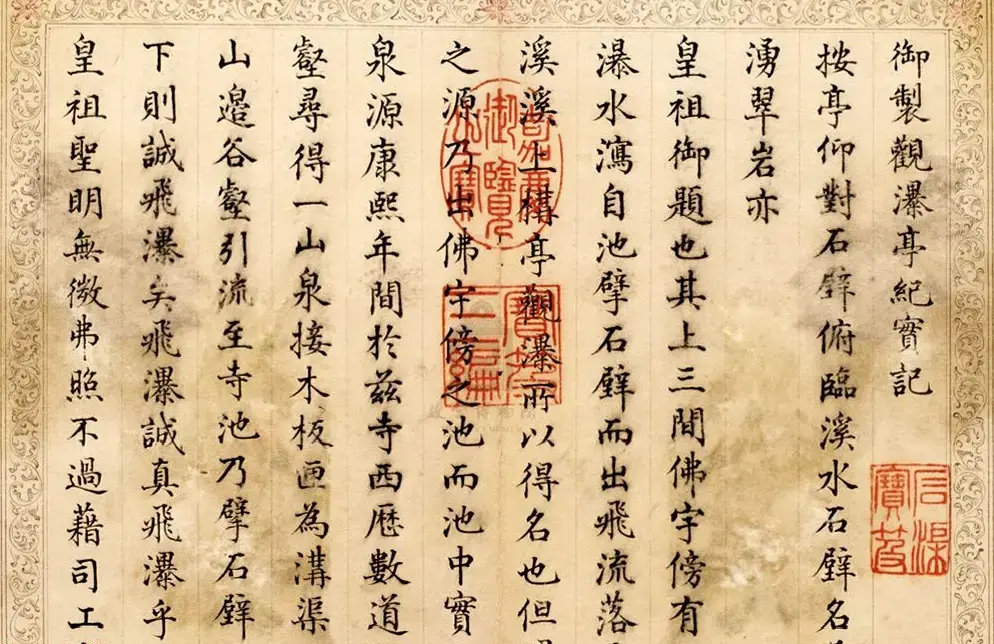 御製觀瀑亭紀實記
按亭仰對石壁俯臨溪水石壁名
湧翠岩亦
皇祖御題也其上三間佛宇傍有
瀑水瀉自池擘石壁而出飛流落
溪溪上構亭觀瀑所以得名也但
之源乃出佛宇傍之池而池中實
泉源康熙年間於茲寺西歷數道
壑尋得一山泉接木板匣為溝渠
山邊谷壑引流至寺池乃擘石壁
下則誠飛瀑矣飛瀑誠真飛瀑乎
皇祖聖明無微弗照不過藉司工
石渠寶笈
嘉慶御覽之寶
寶笈三編